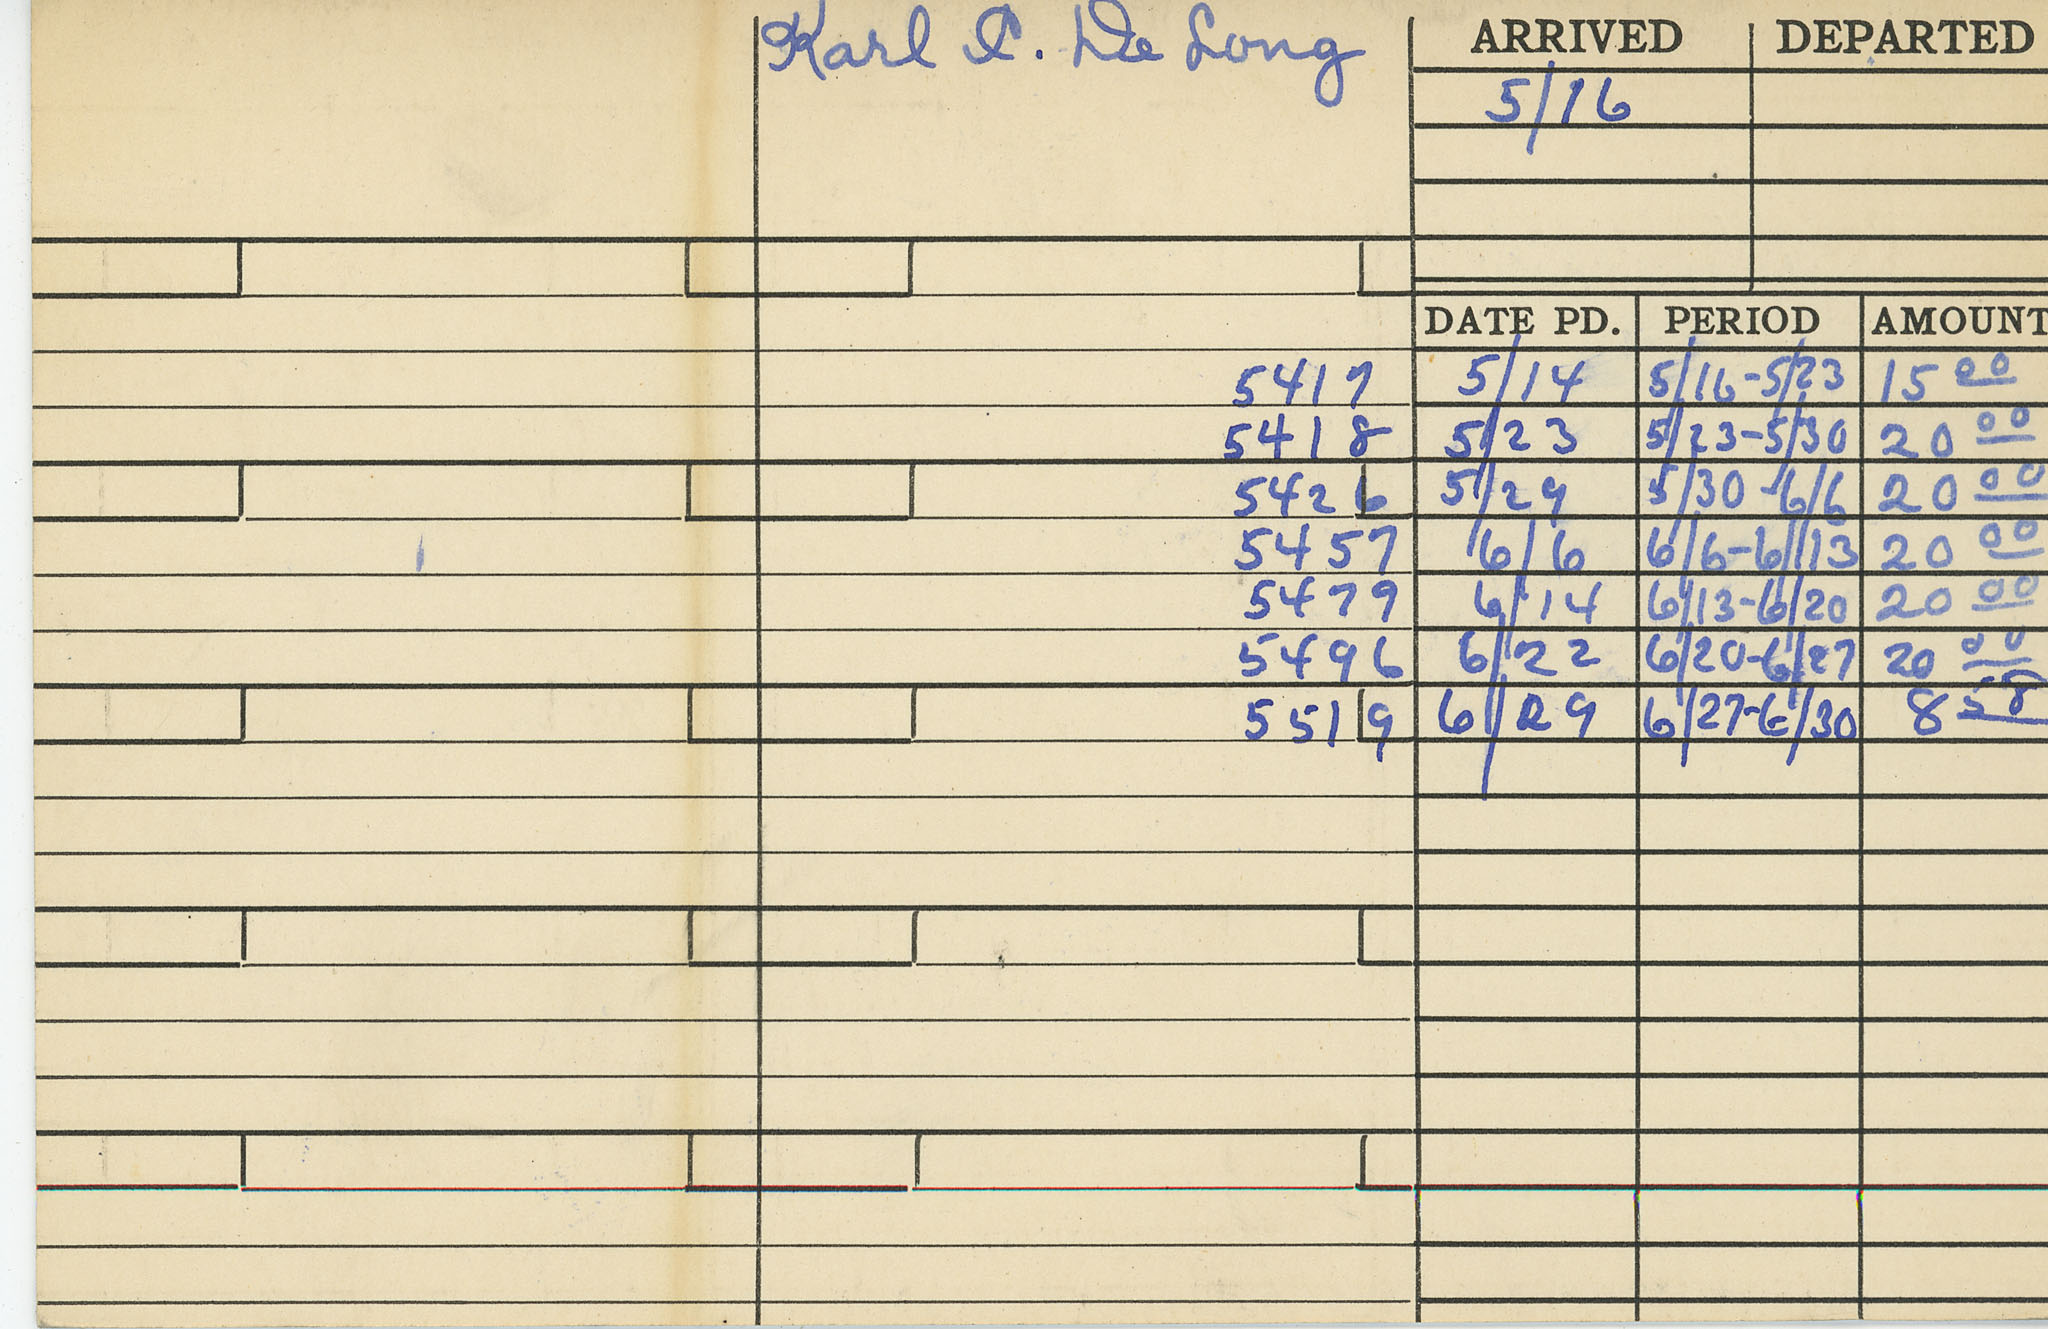 Karl I. De Long
ARRIVED DEPARTED
5/16
DATE PD. PERIOD AMOUNT
5417 5/14 5/16-5/23 15 00
5418 5/23 5/23-5/30 20 00
5426 5/29 5/30-6/6 20 00
5457 6/6 6/6-6/13 20 00
5479 6/14 6/13-6/20 20 00
5496 6/22 6/20-6/27 20 00
5519 6/29 6/27-6/30 8 58